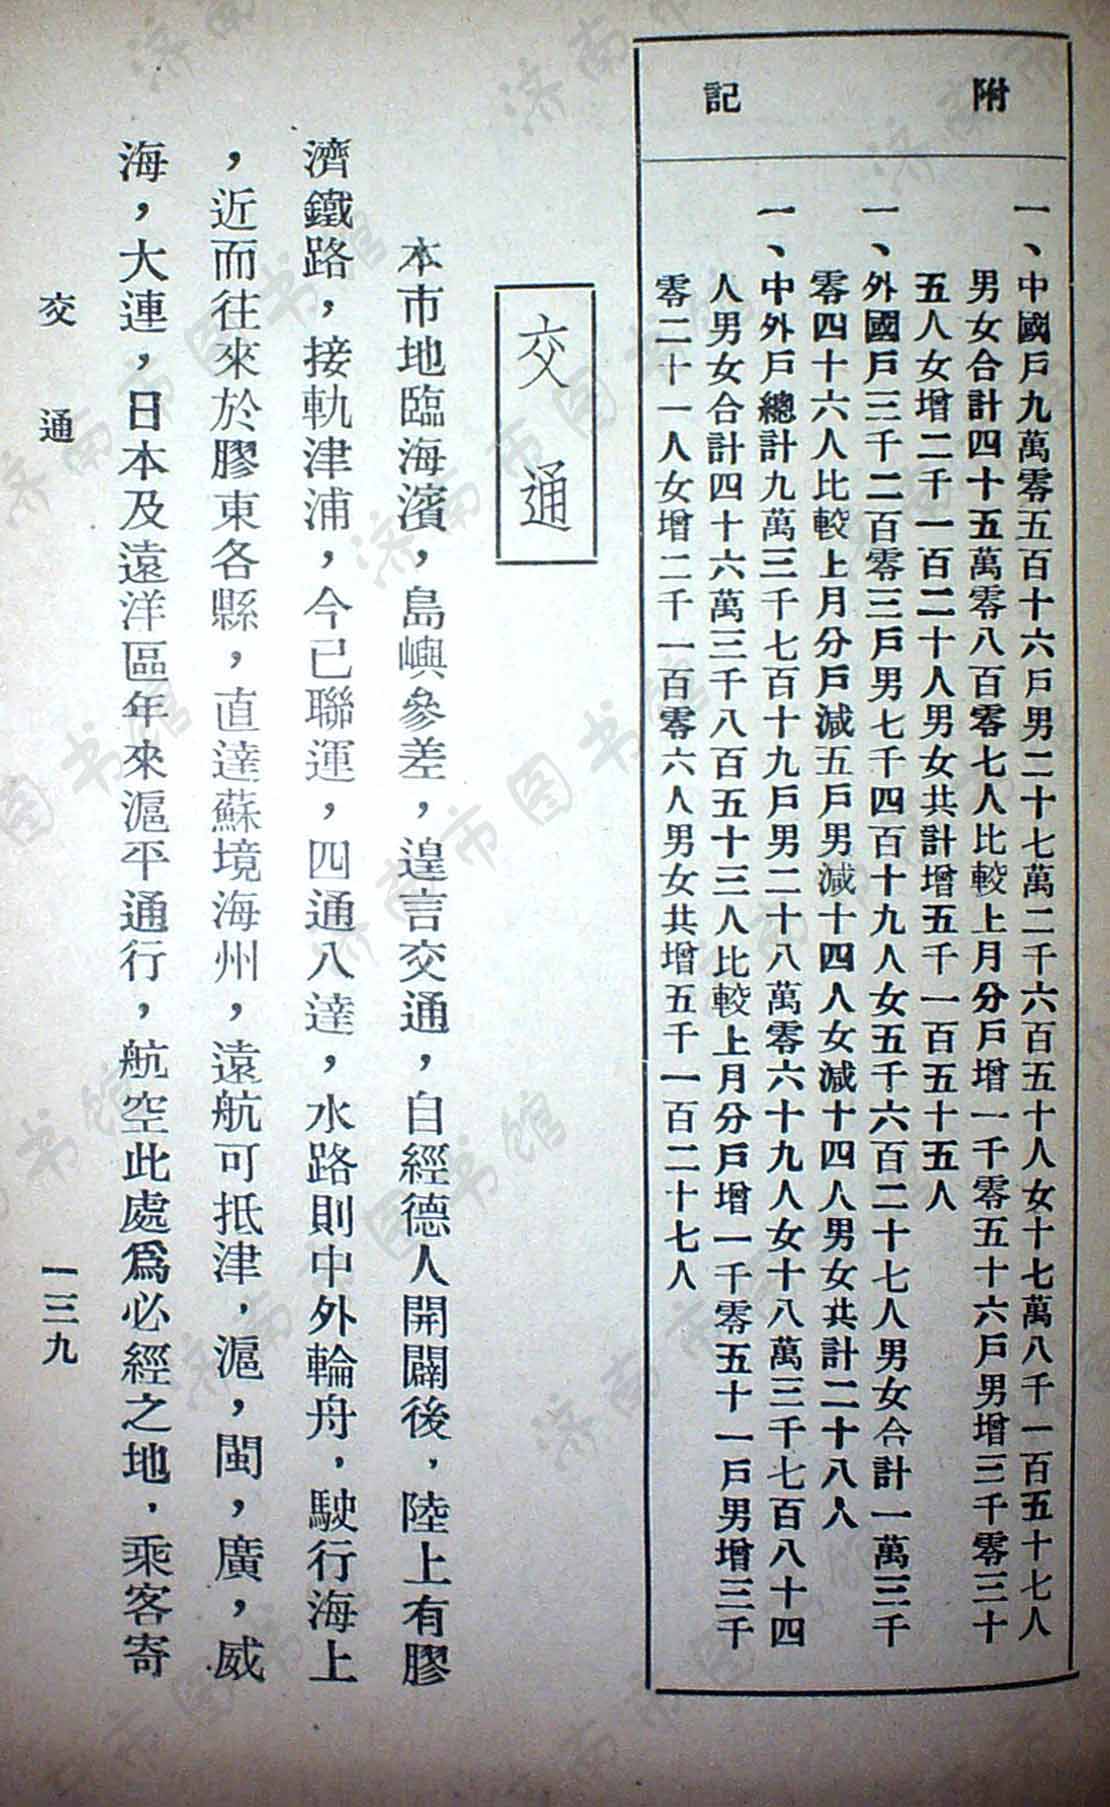 附記
一、中國戶九萬零五百十六戶男二十七萬二千六百五十人女十七萬八千一百五十七人
男女合計四十五萬零八百零七人比較上月分戶增一千零五十六戶男增三千零三十
五人女增二千一百二十人男女共計增五千一百五十五人
一、外國戶三千二百零三戶男七千四百十九人女五千六百二十七人男女合計一萬三千
零四十六人比較上月分戶減五戶男減十四人女減十四人男女共計二十八人
一、中外戶總計九萬三千七百十九戶男二十八萬零六十九人女十八萬三千七百八十四
人男女合計四十六萬三千八百五十三人比較上月分戶增一千零五十一戶男增三千
零二十一人女增二千一百零六人男女共增五千一百二十七人
交通
本市地臨海濱，島嶼參差，遑言交通，自經德人開闢後，陸上有膠
濟鐵路，接軌津浦，今已聯運，四通八達，水路則中外輪舟，駛行海上
，近而往來於膠東各縣，直達蘇境海州，遠航可抵津，滬，閩，廣，威
海，大連，日本及遠洋區年來滬平通行，航空此處爲必經之地，乘客寄
交通
一三九
济南市图书馆